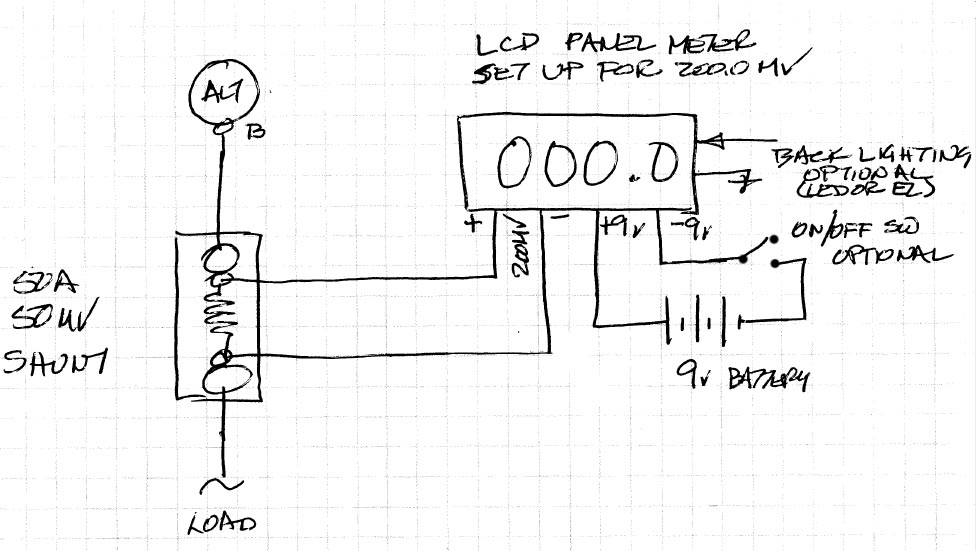 LCD PANEL METER
SET UP FOR 200.0 MV
ALT
B
000.0
BACK LIGHTING
OPTIONAL
(LED OR EL)
+
200MV
-
+9V
-9V
ON/OFF SW
OPTIONAL
50A
50MV
SHUNT
9V BATTERY
LOAD